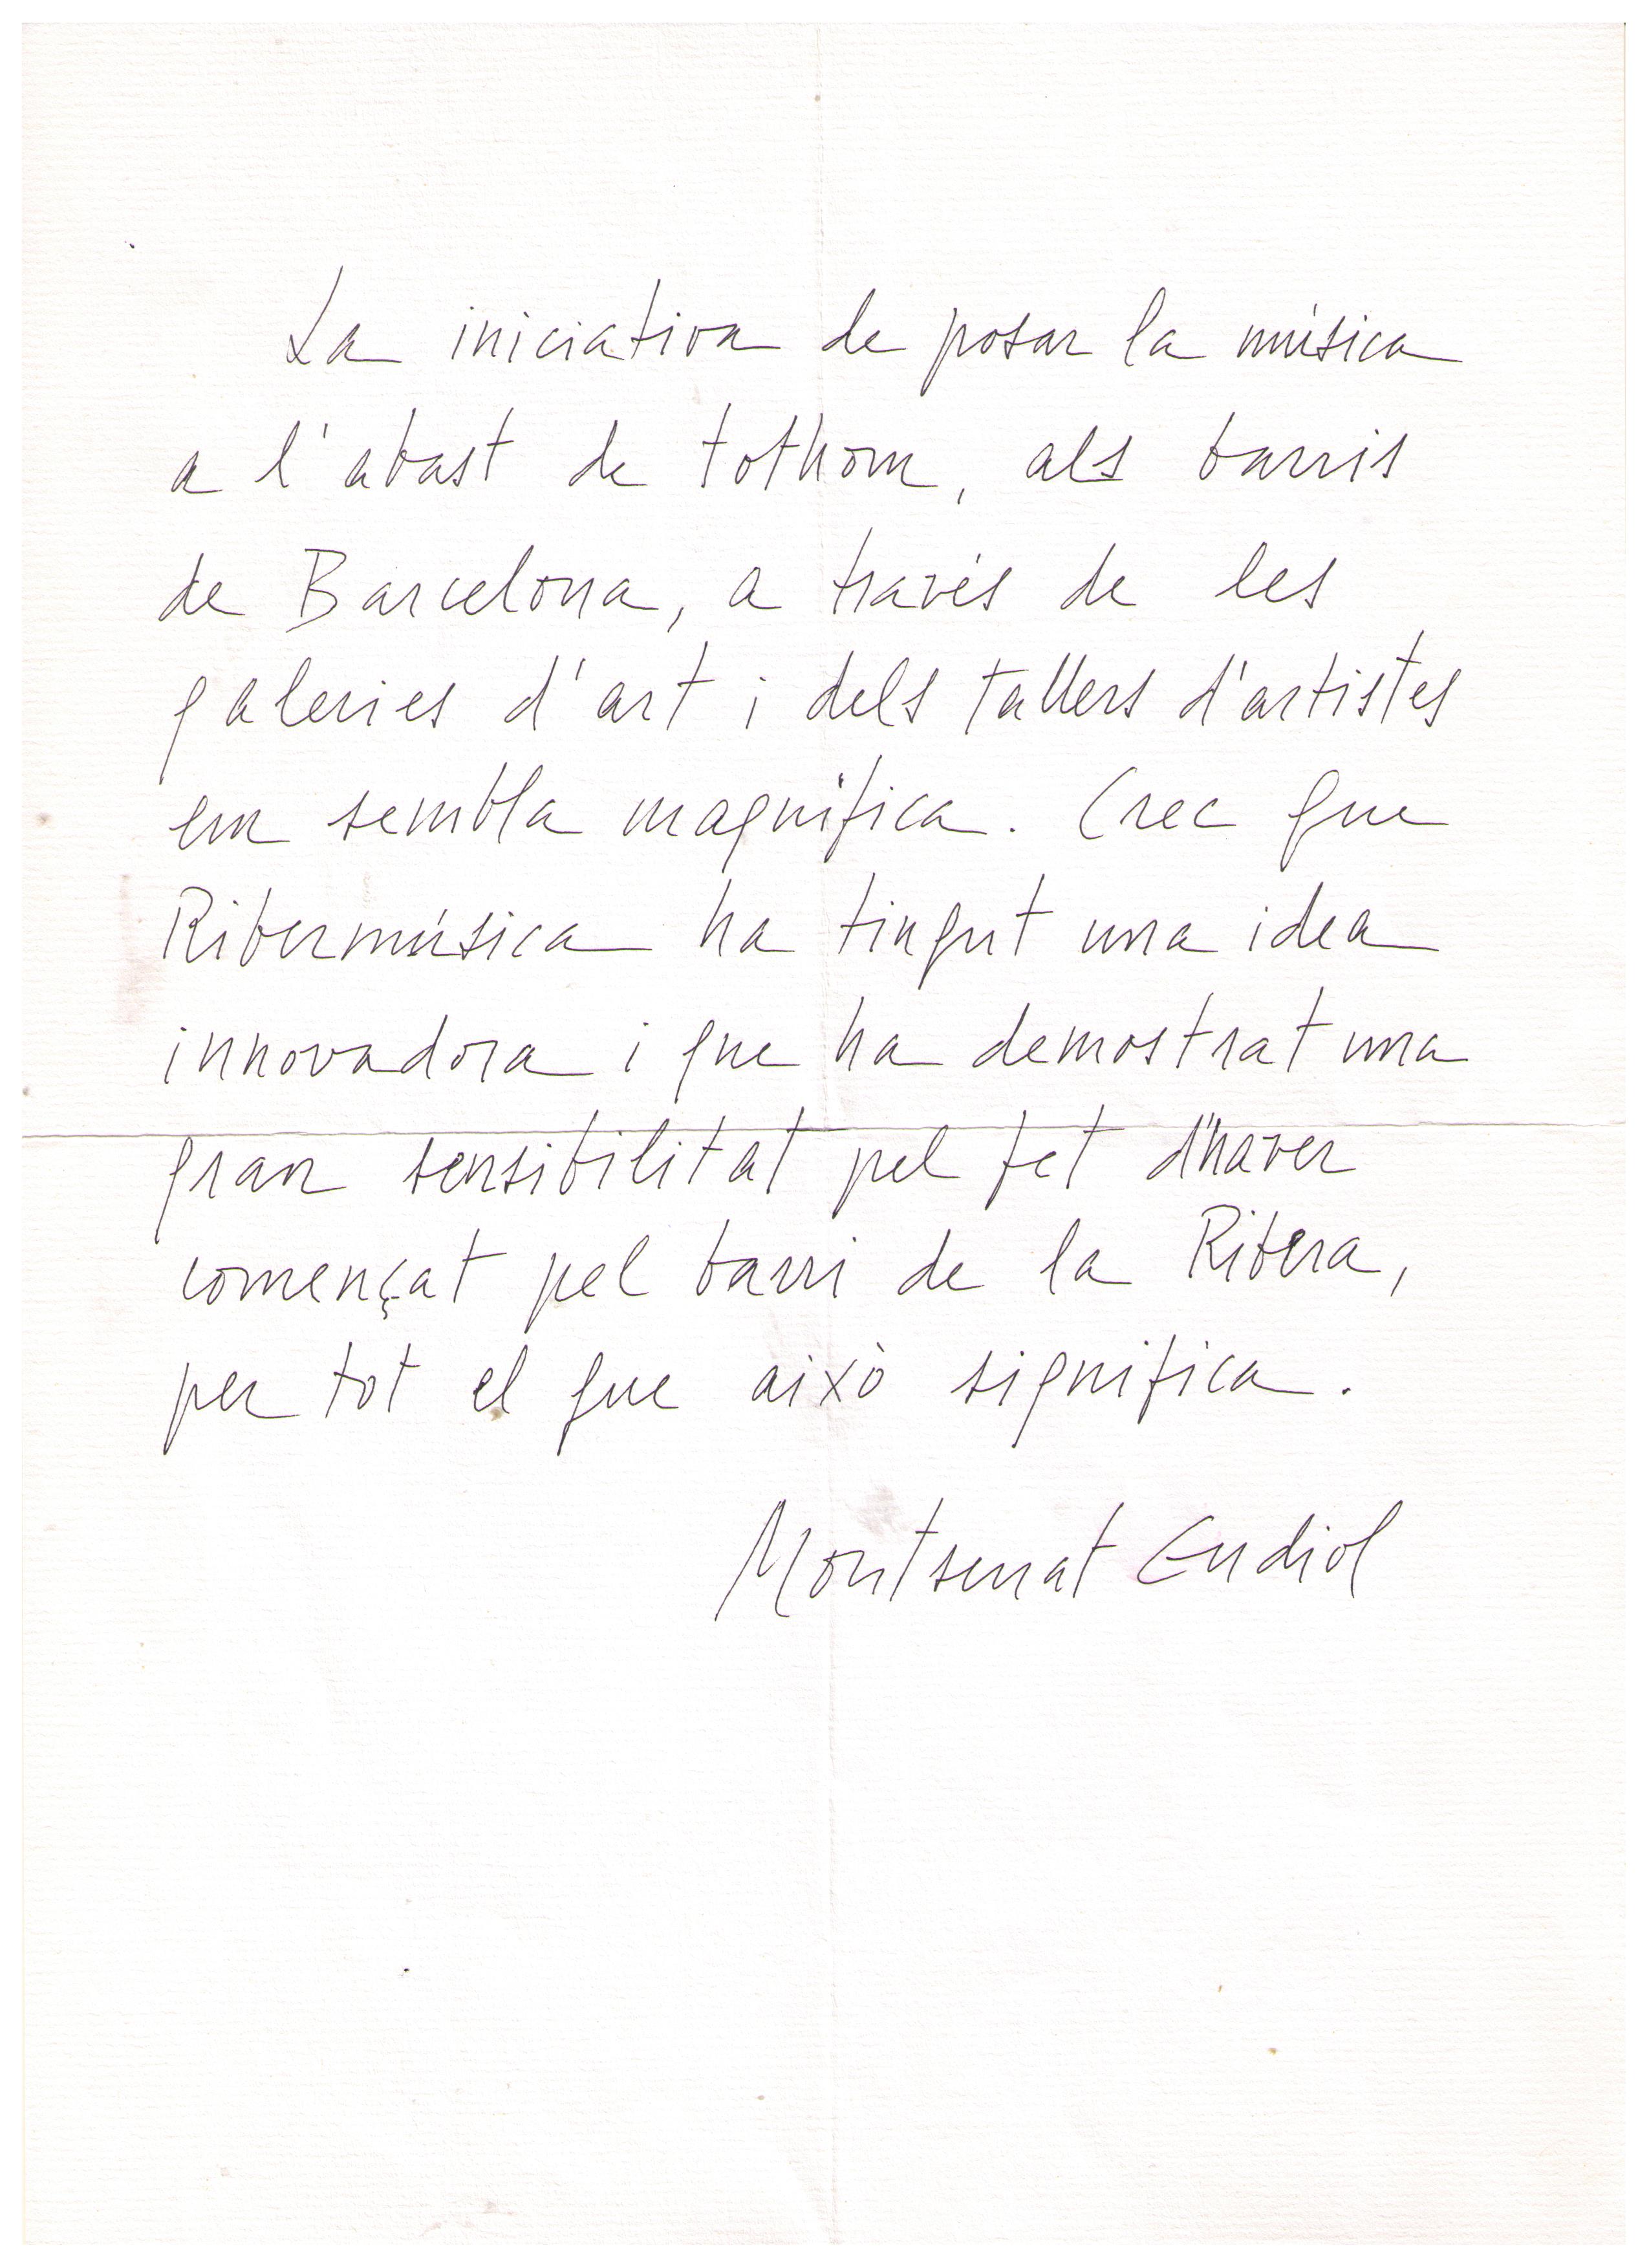 La iniciativa de posar la música
a l'abast de tothom, als barris
de Barcelona, a través de les
galeries d'art i dels tallers d'artistes
em sembla magnífica. Crec que
Ribermúsica ha tingut una idea
innovadora i que ha demostrat una
gran sensibilitat pel fet d'haver
començat pel barri de la Ribera,
per tot el que això significa.
Montserrat Gudiol